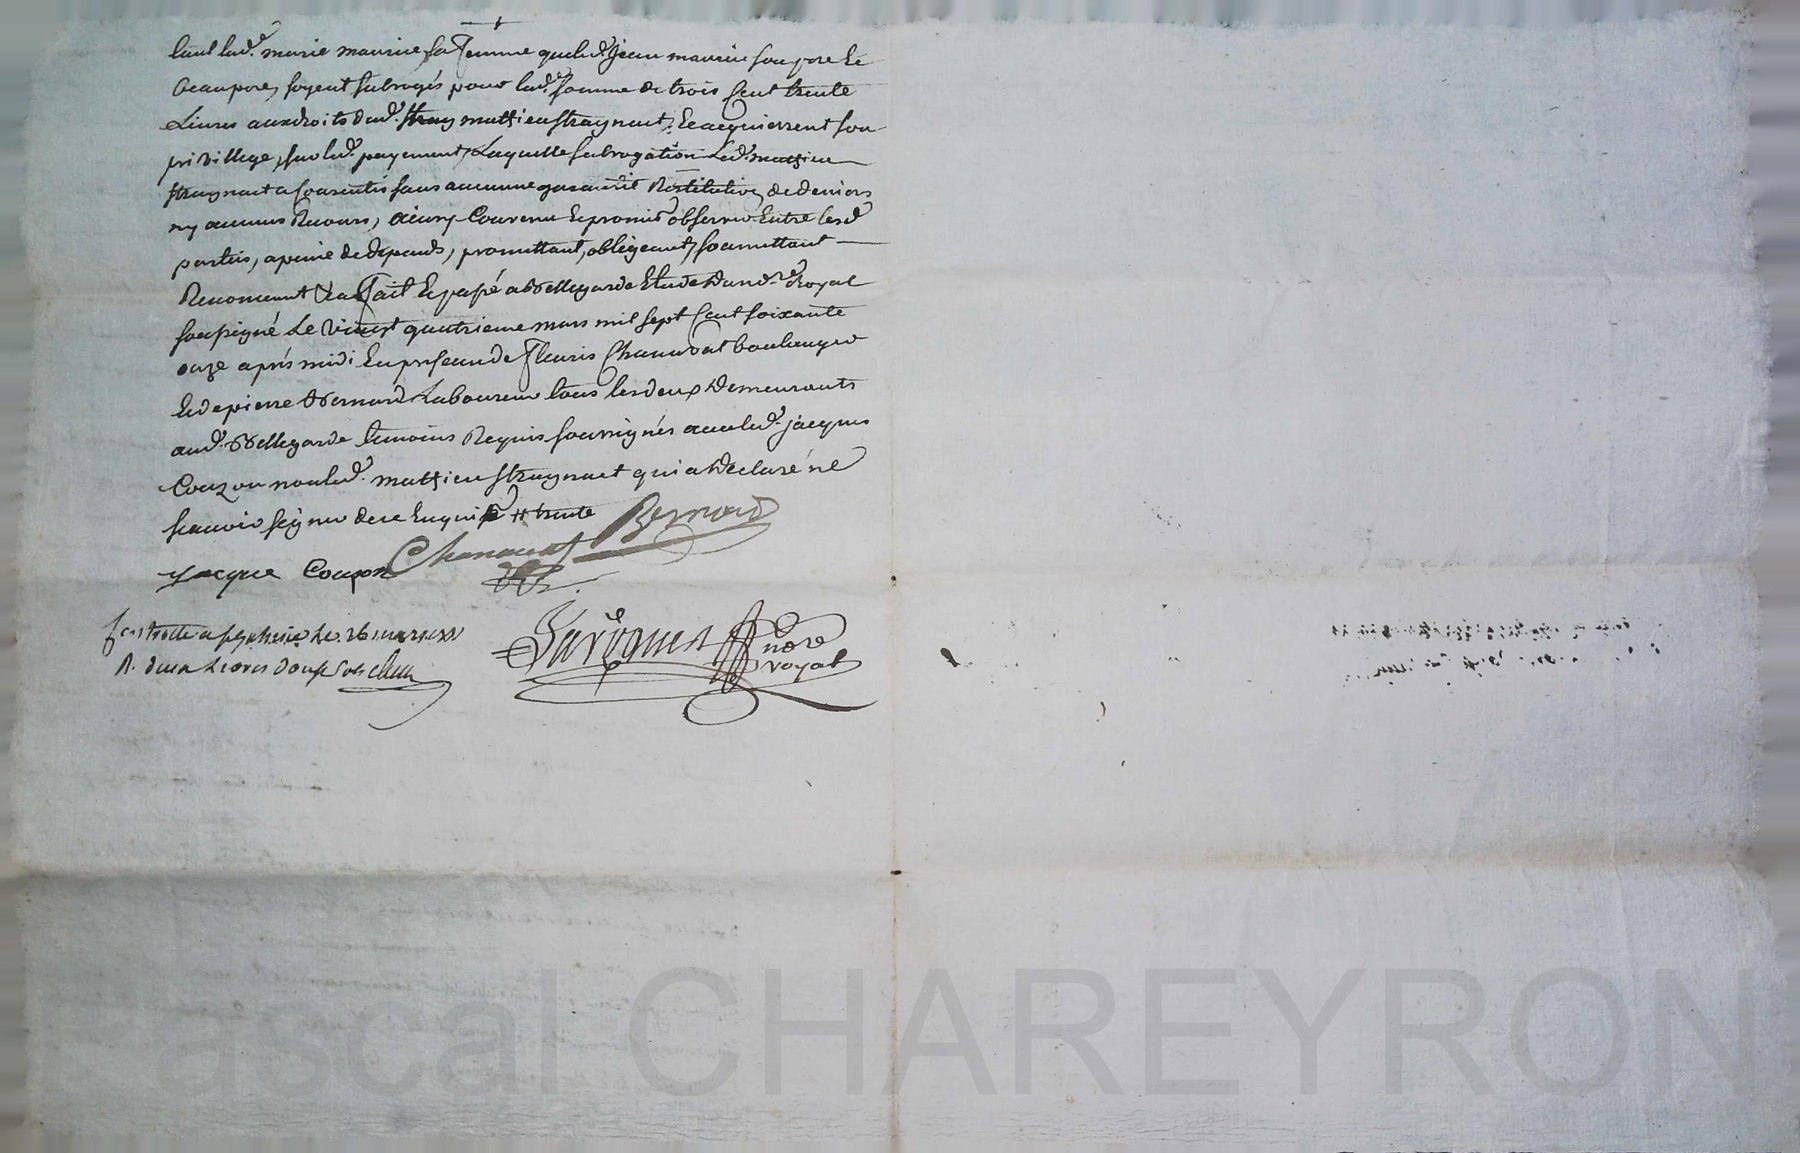 lad.e marie maurice sa femme que led. jean maurice son pere et
beaupere, soyent subrogés pour lad.e somme de trois cent trente
Livres aux droits dud. mathieu et acquierrent son
privillege, sur led. payement, Laquelle subrogation Led. mathieu
a consentis sans aucunne garantie Restitution de deniers
ny aucuns Recours, ainsy Convenu et promis observer Entre lesd.
parties, a peine de depends, promettant, obligeant, soumettant
Renonceant &a fait et passé a Bellegarde Etude dud. n.re Royal
soussigné Le vingt quatrieme mars mil sept cent soixante
onze aprés midi En presence de fleuris Chanavat boulanger
et de pierre Bernard Laboureur tous les deux Demeurants
aud. Bellegarde temoins Requis soussignés avec led. jacques
Couzon non led. mathieu qui a Declaré ne
scavoir signer de ce Enquis # trente
Bernard
Chanavat
Jacque Couzon
le 26 mars
R. deux Livres douze sols
n.re
royal
Pascal CHAREYRON